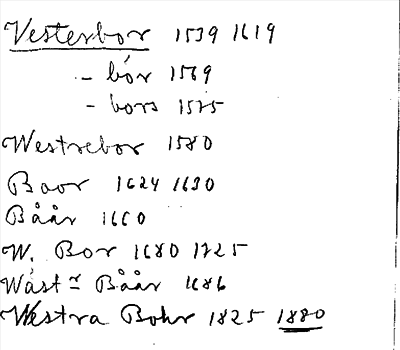 Vesterbor 1539 1619
- bór 1569
- bors 1575
Westrebor 1580
Baor 1624 1630
Båår 1660
W. Bor 1680 1725
Wäst Båår 1686
Westra Bohr 1825 1880